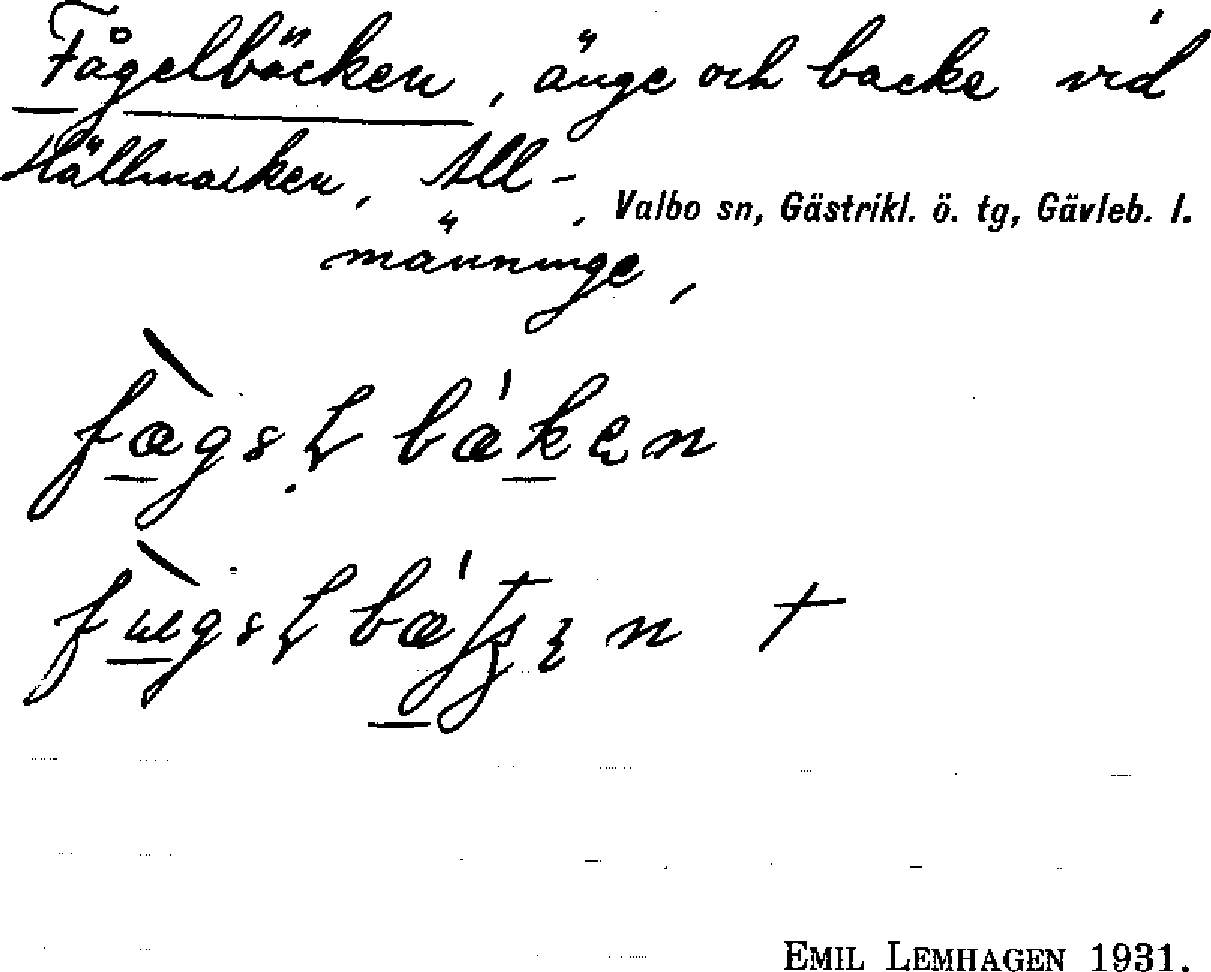 Fågelbäcken, änge och backe vid
Hällmacken, All-
Valbo sn, Gästrikl. ö. tg, Gävleb. l.
männinge,
EMIL LEMHAGEN 1931.